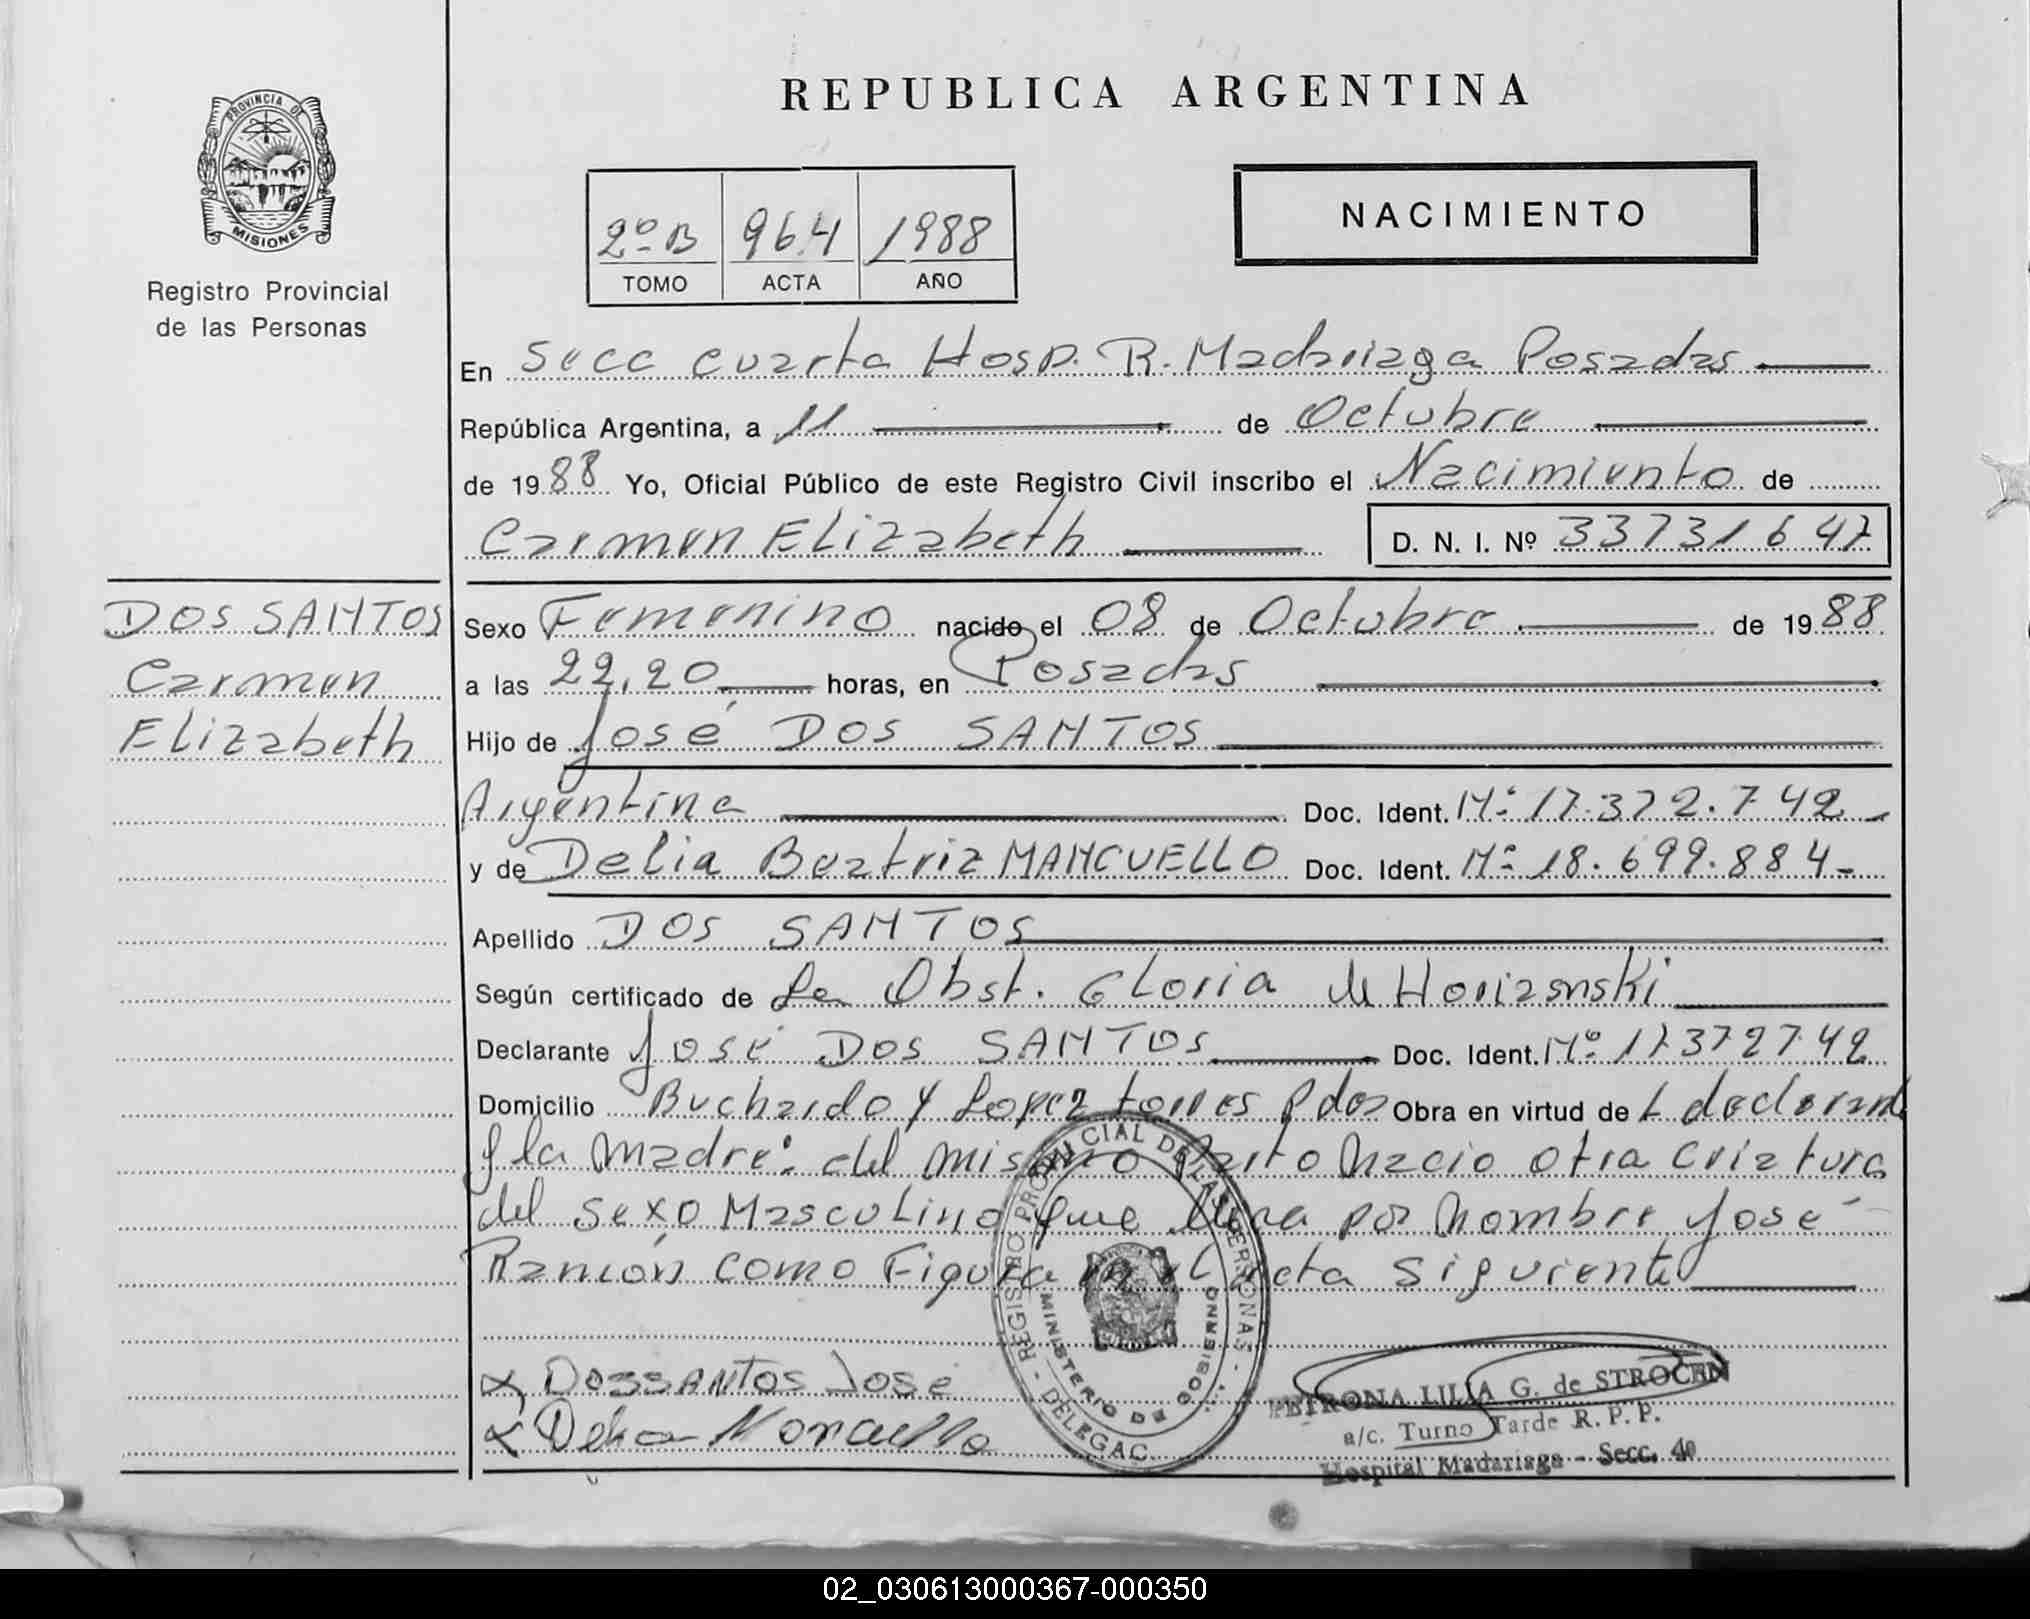 REPUBLICA ARGENTINA
PROVINCIA DE
MISIONES
Registro Provincial
de las Personas
2º B 964 1988
TOMO ACTA AÑO
NACIMIENTO
En Secc cuarta Hosp. R. Madariaga Posadas
República Argentina, a 11 de Octubre
de 1988 Yo, Oficial Público de este Registro Civil inscribo el Nacimiento de
Carmen Elizabeth D. N. I. Nº 33731647
DOS SANTOS
Carmen
Elizabeth
Sexo Femenino nacido el 08 de Octubre de 1988
a las 22,20 horas, en Posadas
Hijo de José DOS SANTOS
Argentina Doc. Ident. Nº 17.372.742
y de Delia Beatriz MANCUELLO Doc. Ident. Nº 18.699.884
Apellido DOS SANTOS
Según certificado de La Obst. Gloria de
Declarante José DOS SANTOS Doc. Ident. Nº 17372742
Domicilio Buchardo y Lopez torres Pdas Obra en virtud de
y la madre: del mismo Parto Nacio otra criatura
del sexo Masculino que lleva por Nombre José
Ramón como Figura en el acta siguiente
REGISTRO PROVINCIAL DE LAS PERSONAS - DELEGAC.
MINISTERIO DE GOBIERNO
x DOSSANTOS José
x Delia Mancuello
PETRONA LILIA G. de STROCEN
a/c. Turno Tarde R. P. P.
Hospital Madariaga - Secc. 4º
02_030613000367-000350